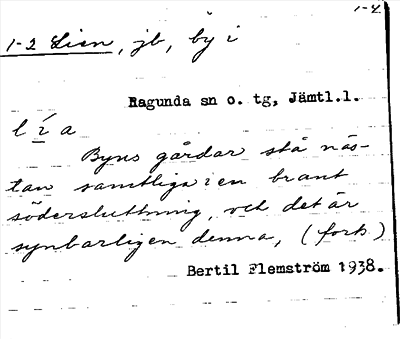 1-4
1-2 Lien, jb, by i
Ragunda sn o. tg, Jämtl.l.
lía
Byns gårdar stå näs-
tan samtliga i en brant
södersluttning, och det är
synbarligen denna, (forts.)
Bertil Flemström 1938.